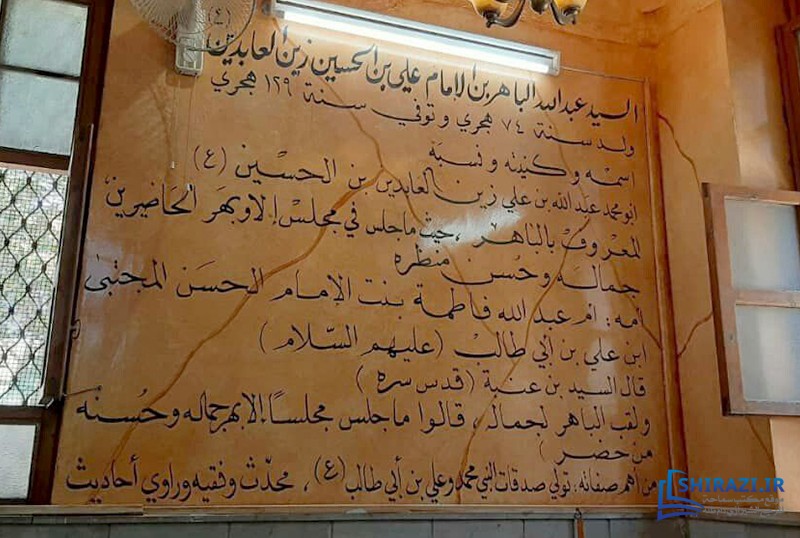 السيد عبدالله الباهر بن الإمام علي بن الحسين زين العابدين (ع)
ولد سنة ٧٤ هجري وتوفي سنة ١٢٩ هجري
اسمه وكنيته ونسبه
ابو محمد عبدالله بن علي زين العابدين بن الحسين (ع)
المعروف بالباهر ، حيث ما جلس في مجلس إلا وبهر الحاضرين
جماله وحسن منظره
أمه : أم عبدالله فاطمة بنت الإمام الحسن المجتبى
ابن علي بن أبي طالب (عليهم السلام)
قال السيد بن عنبة (قدس سره)
ولقب الباهر لجماله ، قالوا ما جلس مجلساً إلا بهر جماله وحسنه
من حضر )
من أهم صفاته : تولي صدقات النبي محمد وعلي بن أبي طالب (ع) ، محدّث وفقيه وراوي أحاديث
SHIRAZI.IR